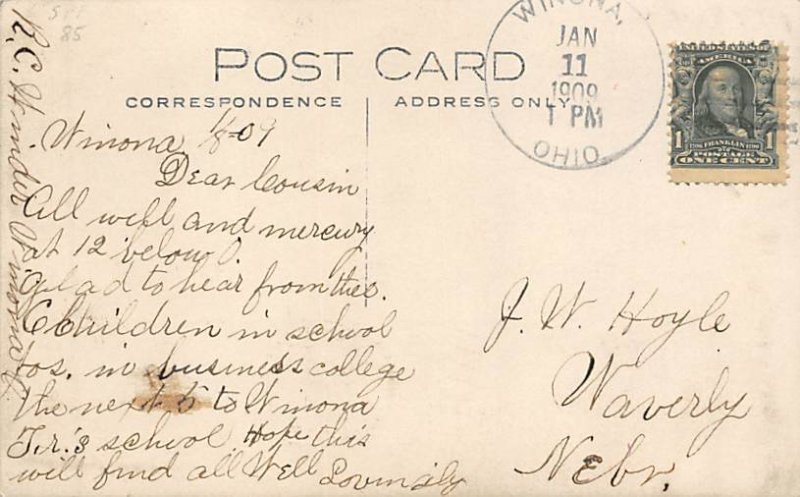 POST CARD
CORRESPONDENCE
ADDRESS ONLY
WINONA,
JAN
11
1909
1 PM
OHIO
UNITED STATES OF
AMERICA
1
1
FRANKLIN
POSTAGE
ONE CENT
Winona 1/8-09
Dear Cousin
All well and mercury
at 12 below 0.
Glad to hear from thee.
6 Children in school
Jos. in business college
The next 5 to Winona
school Hope this
will find all Well Lovingly
R. C.
Winona O.
J. W. Hoyle
Waverly
Nebr.
85